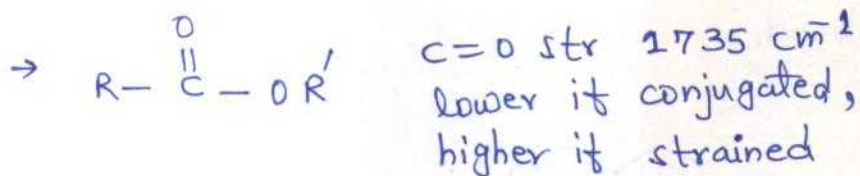 O
||
→ R — C — OR'
C=O str 1735 cm⁻¹
lower if conjugated,
higher if strained